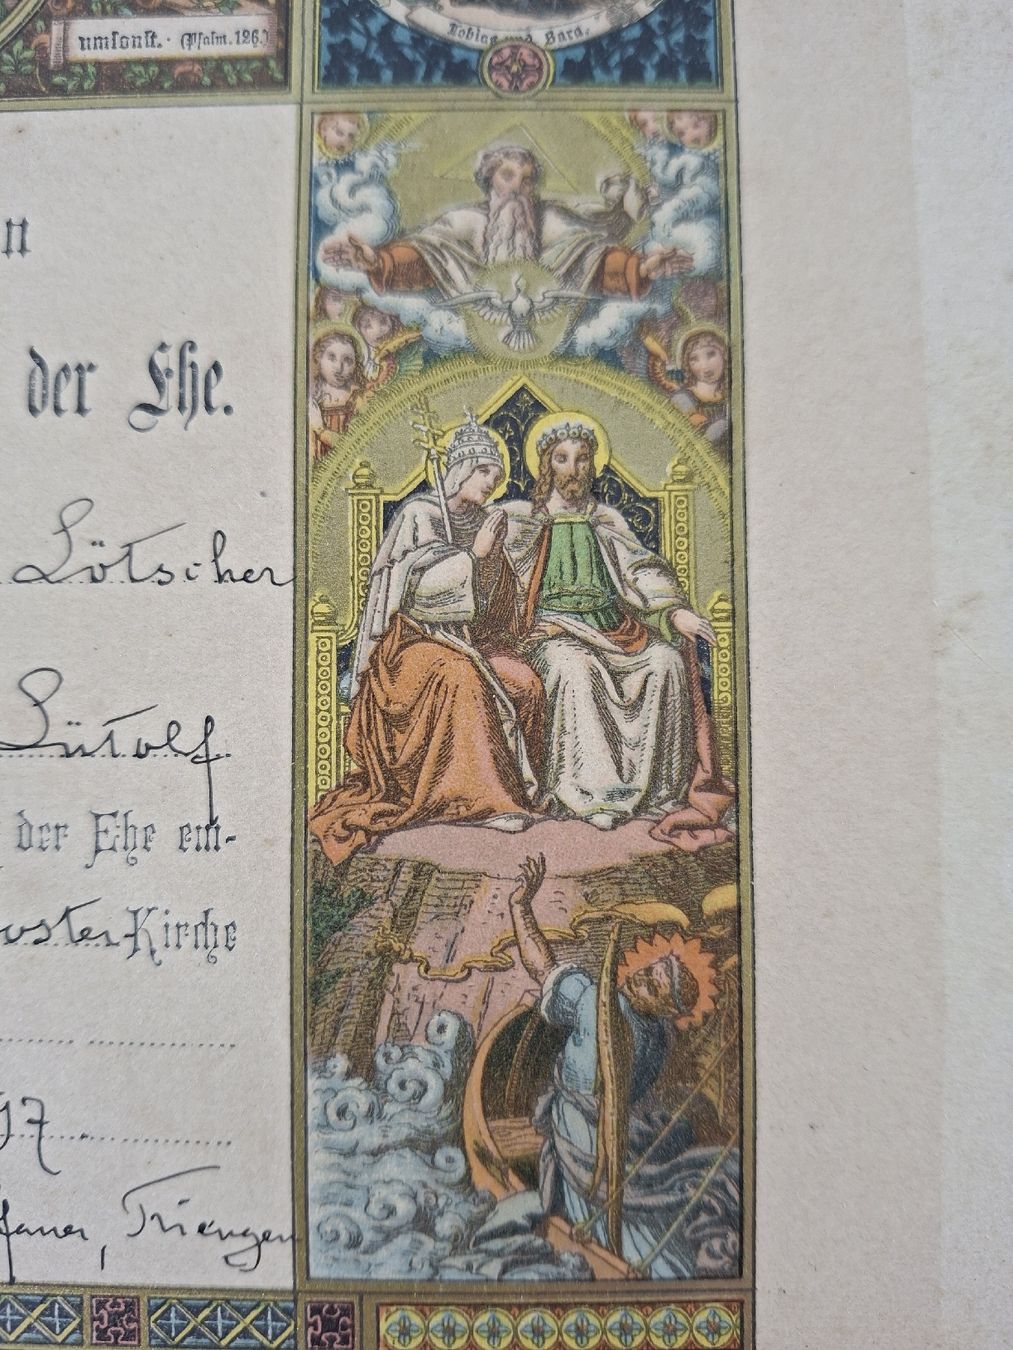 umsonst. (Psalm.126.)
Tobias und Sara.
n
der Ehe.
Lötscher
Lütolf
der Ehe em-
Kirche
17
Triengen